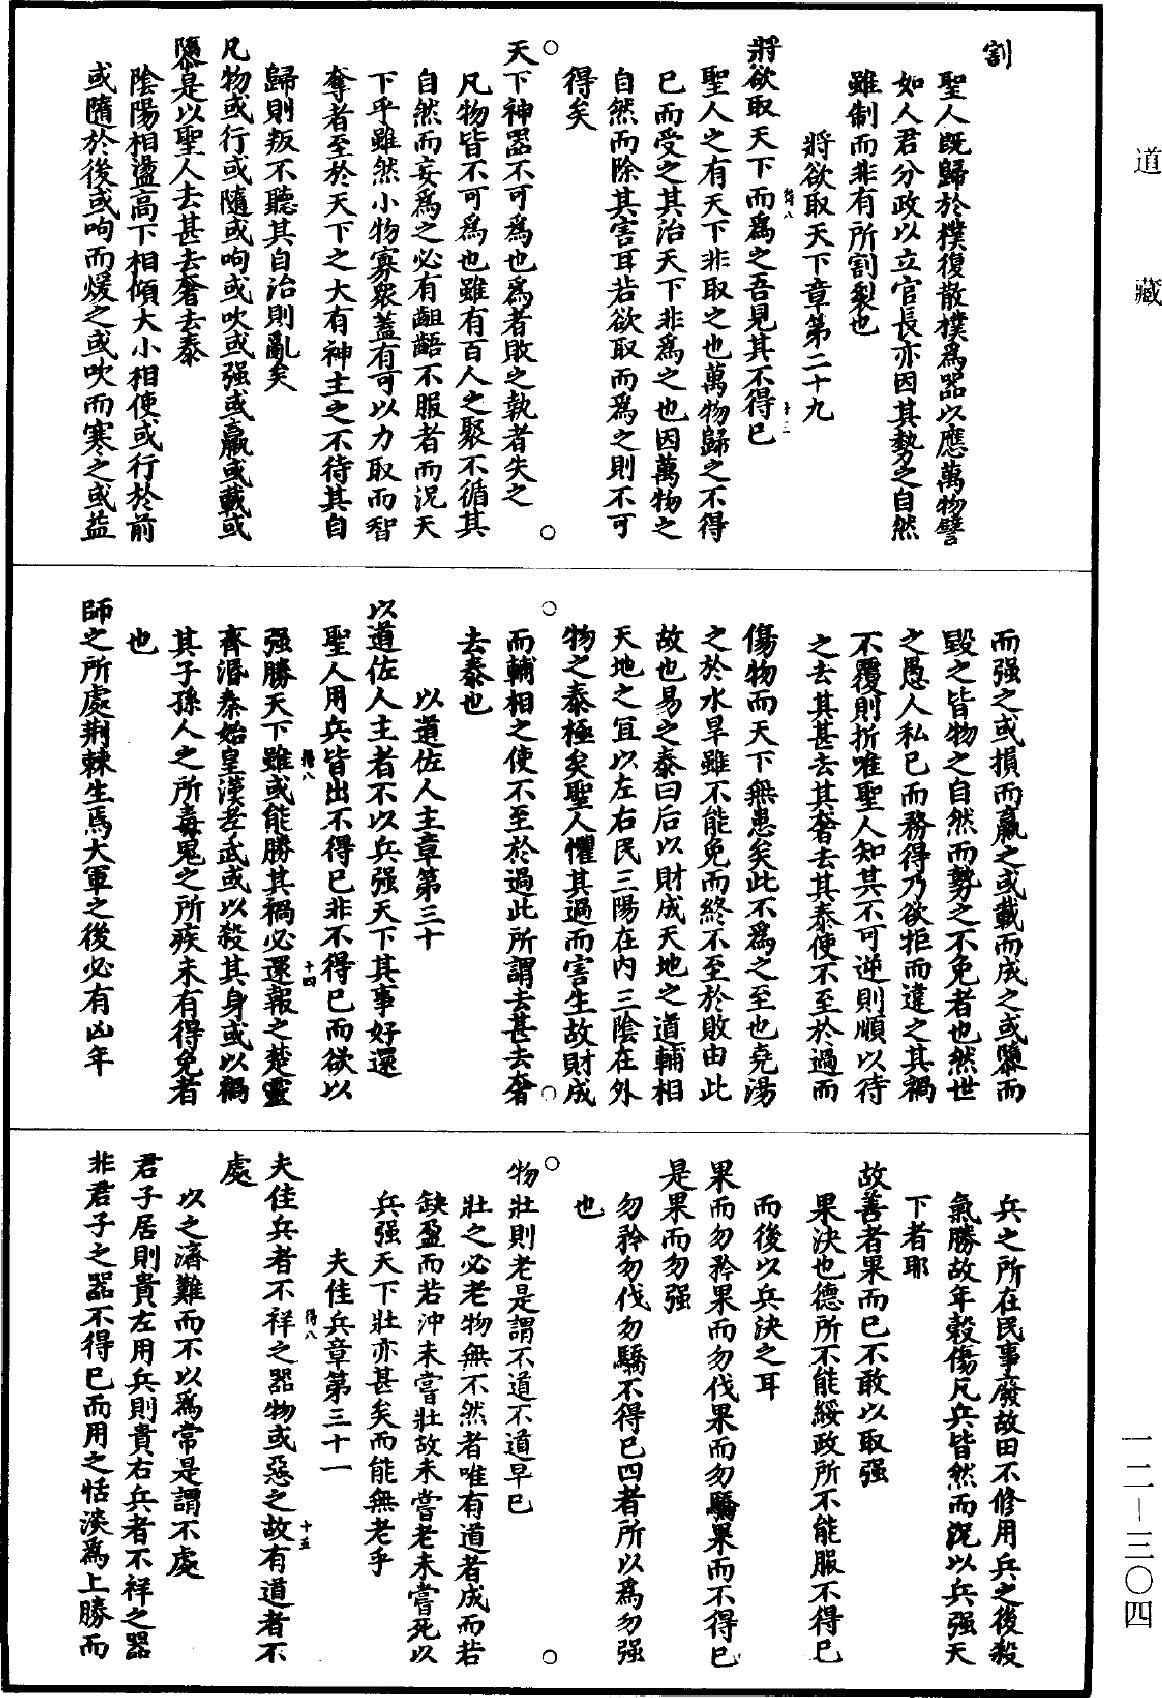 道藏
割
聖人既歸於樸復散樸為器以應萬物譬
如人君分政以立官長亦因其勢之自然
雖制而非有所割裂也
將欲取天下章第二十九
將欲取天下而為之吾見其不得已
聖人之有天下非取之也萬物歸之不得
已而受之其治天下非為之也因萬物之
自然而除其害耳若欲取而為之則不可
得矣
天下神器不可為也為者敗之執者失之
凡物皆不可為也雖有百人之聚不循其
自然而妄為之必有齟齬不服者而況天
下乎雖然小物寡衆蓋有可以力取而智
奪者至於天下之大有神主之不待其自
歸則叛不聽其自治則亂矣
凡物或行或隨或呴或吹或强或羸或載或
隳是以聖人去甚去奢去泰
陰陽相盪高下相傾大小相使或行於前
或隨於後或呴而煖之或吹而寒之或益
而强之或損而羸之或載而成之或隳而
毀之皆物之自然而勢之不免者也然世
之愚人私己而務得乃欲拒而違之其禍
不覆則折唯聖人知其不可逆則順以待
之去其甚去其奢去其泰使不至於過而
傷物而天下無患矣此不為之至也堯湯
之於水旱雖不能免而終不至於敗由此
故也易之泰曰后以財成天地之道輔相
天地之宜以左右民三陽在内三陰在外
物之泰極矣聖人懼其過而害生故財成
而輔相之使不至於過此所謂去甚去奢
去泰也
以道佐人主章第三十
以道佐人主者不以兵强天下其事好還
聖人用兵皆出不得已非不得已而欲以
强勝天下雖或能勝其禍必還報之楚靈
齊湣秦始皇漢孝武或以殺其身或以禍
其子孫人之所毒鬼之所疾未有得免者
也
師之所處荆棘生焉大軍之後必有凶年
兵之所在民事廢故田不修用兵之後殺
氣勝故年穀傷凡兵皆然而況以兵强天
下者耶
故善者果而已不敢以取强
果決也德所不能綏政所不能服不得已
而後以兵決之耳
果而勿矜果而勿伐果而勿驕果而不得已
是果而勿强
勿矜勿伐勿驕不得已四者所以為勿强
也
物壯則老是謂不道不道早已
壯之必老物無不然者唯有道者成而若
缺盈而若沖未嘗壯故未嘗老未嘗死以
兵强天下壯亦甚矣而能無老乎
夫佳兵章第三十一
夫佳兵者不祥之器物或惡之故有道者不
處
以之濟難而不以為常是謂不處
君子居則貴左用兵則貴右兵者不祥之器
非君子之器不得已而用之恬淡為上勝而
一二—三〇四